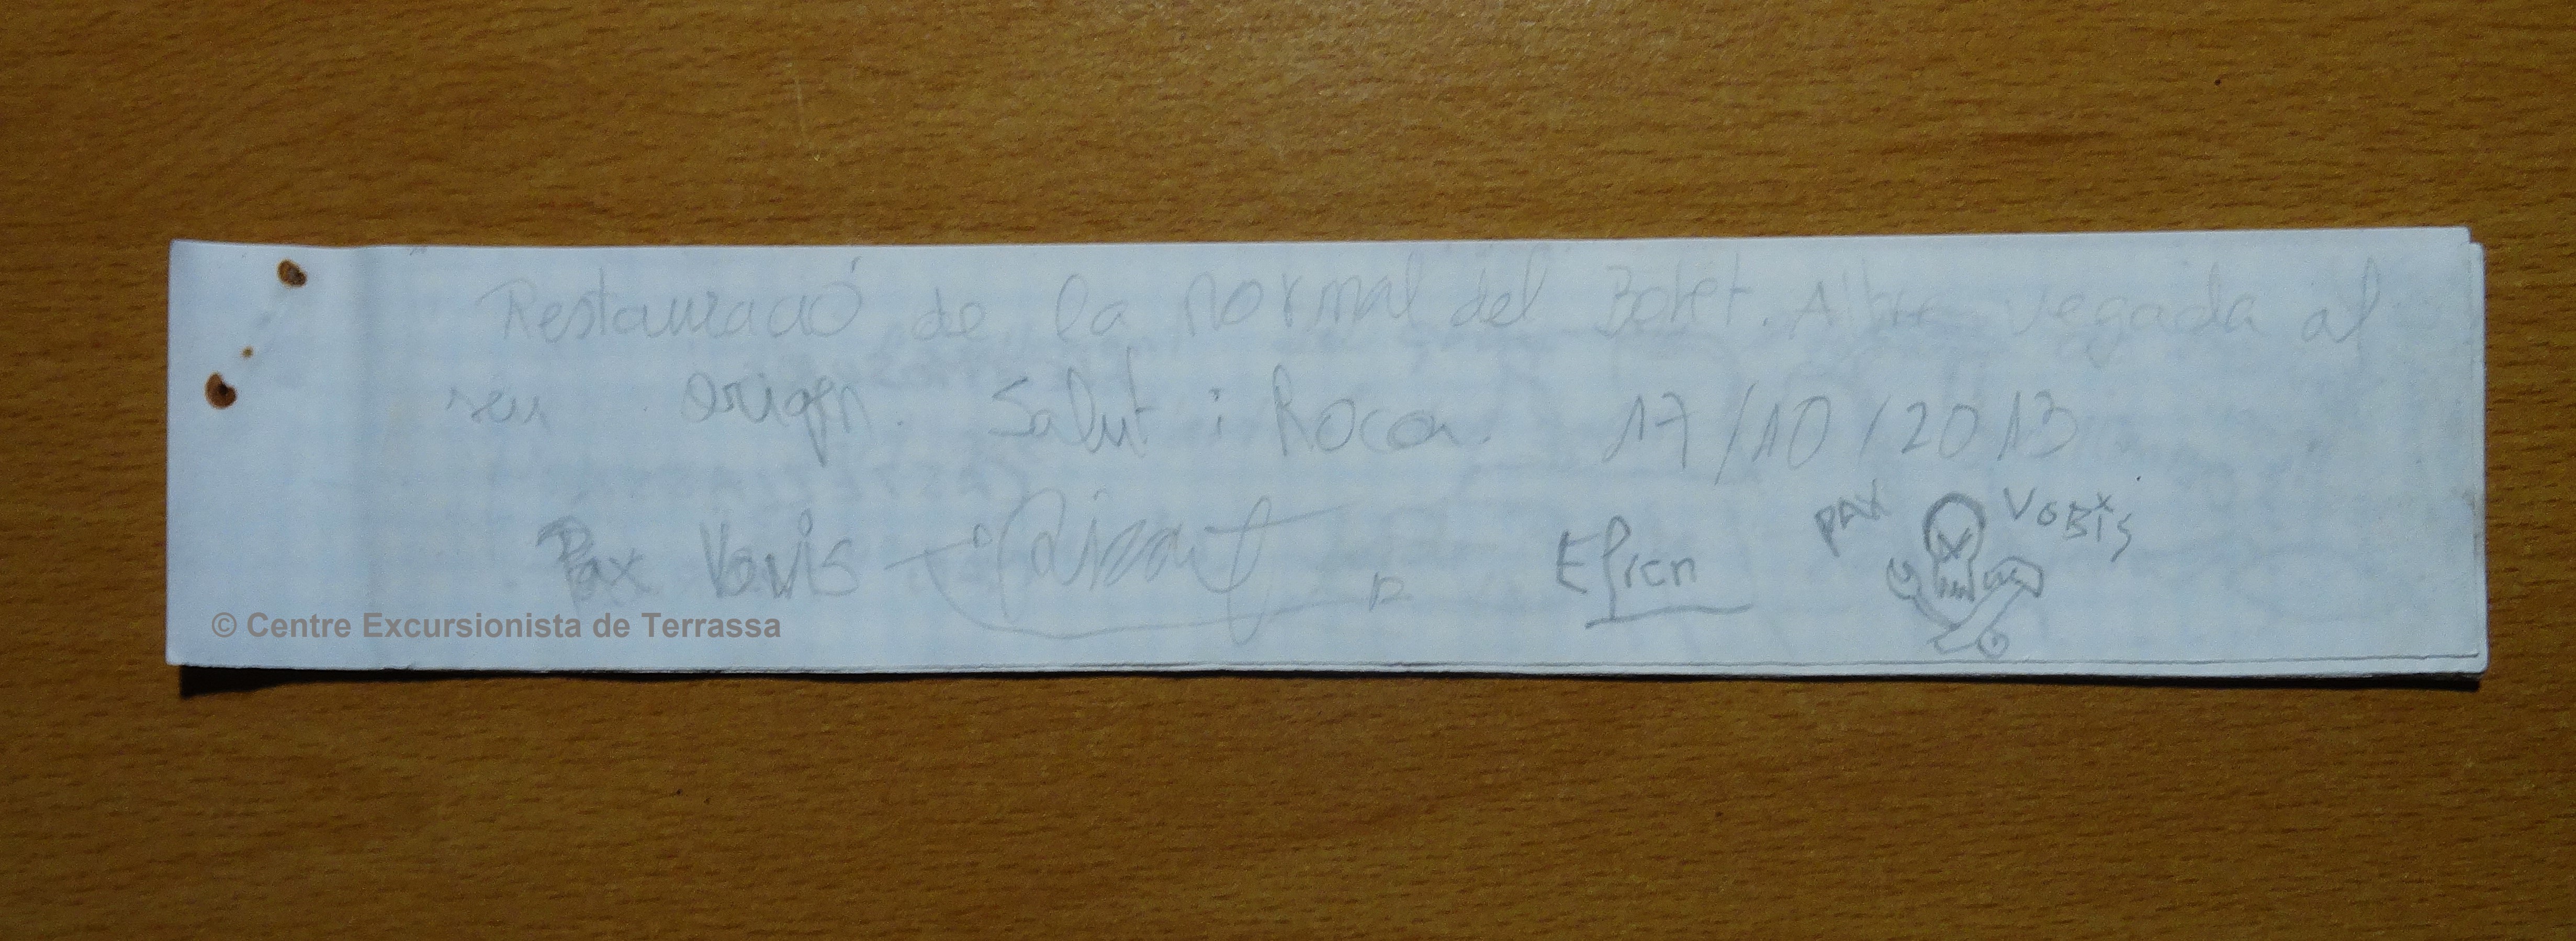 Restauració de la normal del Bolet. Altre vegada al
seu origen. Salut i Roca. 17/10/2013
Pax Vovis
Efren
PAX VOBIS
© Centre Excursionista de Terrassa